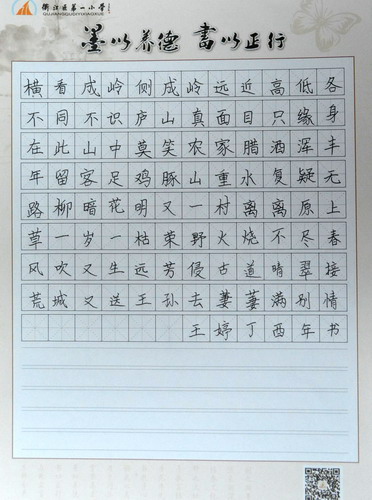 衢江区第一小学
QUJIANGQUDIYIXIAOXUE
墨以养德 书以正行
横看成岭侧成岭远近高低各
不同不识庐山真面目只缘身
在此山中莫笑农家腊酒浑丰
年留客足鸡豚山重水复疑无
路柳暗花明又一村离离原上
草一岁一枯荣野火烧不尽春
风吹又生远芳侵古道晴翠接
荒城又送王孙去萋萋满别情
王婷丁酉年书